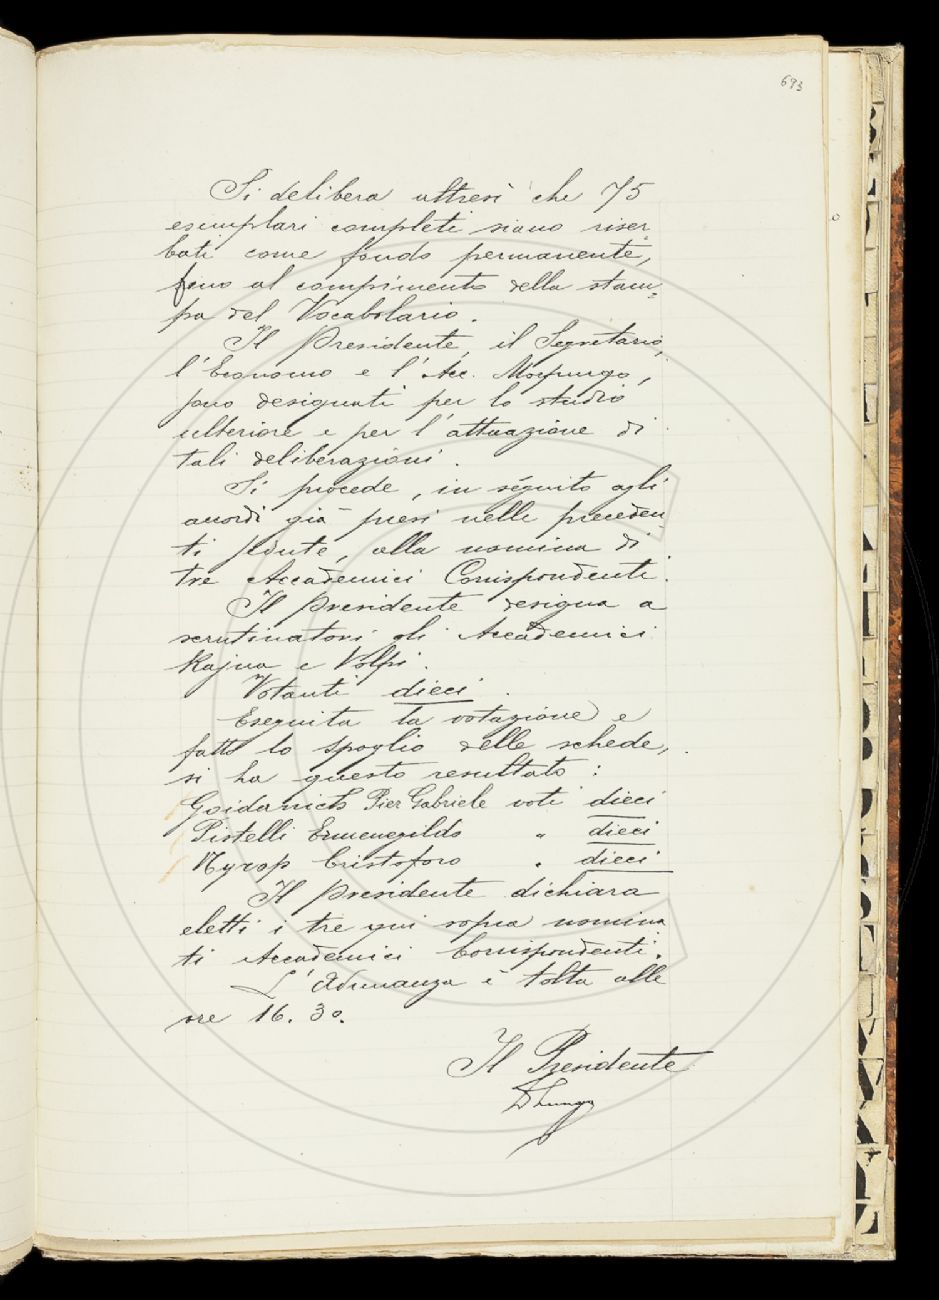 693
Si delibera altresì che 75
esemplari completi siano riser-
bati come fondo permanente,
fino al compimento della stam-
pa del Vocabolario.
Il Presidente, il Segretario,
l'Economo e l'Acc. Morpurgo,
sono designati per lo studio
ulteriore e per l'attuazione di
tali deliberazioni.
Si procede, in séguito agli
accordi già presi nelle preceden-
ti sedute, alla nomina di
tre Accademici Corrispondenti.
Il Presidente designa a
scrutinatori gli Accademici
Rajna e Volpi.
Votanti dieci.
Eseguita la votazione e
fatto lo spoglio delle schede,
si ha questo resultato:
Goidanich Pier Gabriele voti dieci
Pistelli Ermenegildo " dieci
Nyrop Cristoforo " dieci
Il Presidente dichiara
eletti i tre qui sopra nomina
ti Accademici Corrispondenti.
L'Adunanza è tolta alle
ore 16.30.
Il Presidente